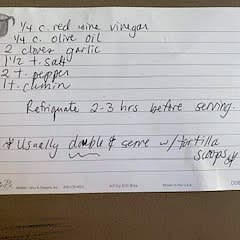 1/4 c. red wine vinegar
1/4 c. olive oil
2 cloves garlic
1 1/2 t. salt
2 t. pepper
1 t. cumin
Refrigerate 2-3 hrs before serving.
* Usually double & serve w/ tortilla
scoops